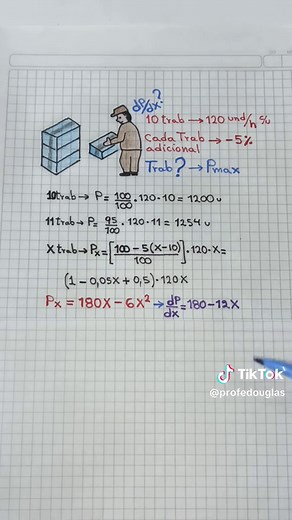 ?
dP/dx
10 trab → 120 und/h %
Cada Trab → -5%
adicional
Trab? → Pmax
10trab → P = 100/100 . 120 . 10 = 1200 u
11trab → P = 95/100 . 120 . 11 = 1254 u
X trab → Px = [100 - 5(X-10)/100] . 120 . X =
(1 - 0,05X + 0,5) . 120X
Px = 180X - 6X² → dP/dx = 180 - 12X
TikTok
@profedouglas